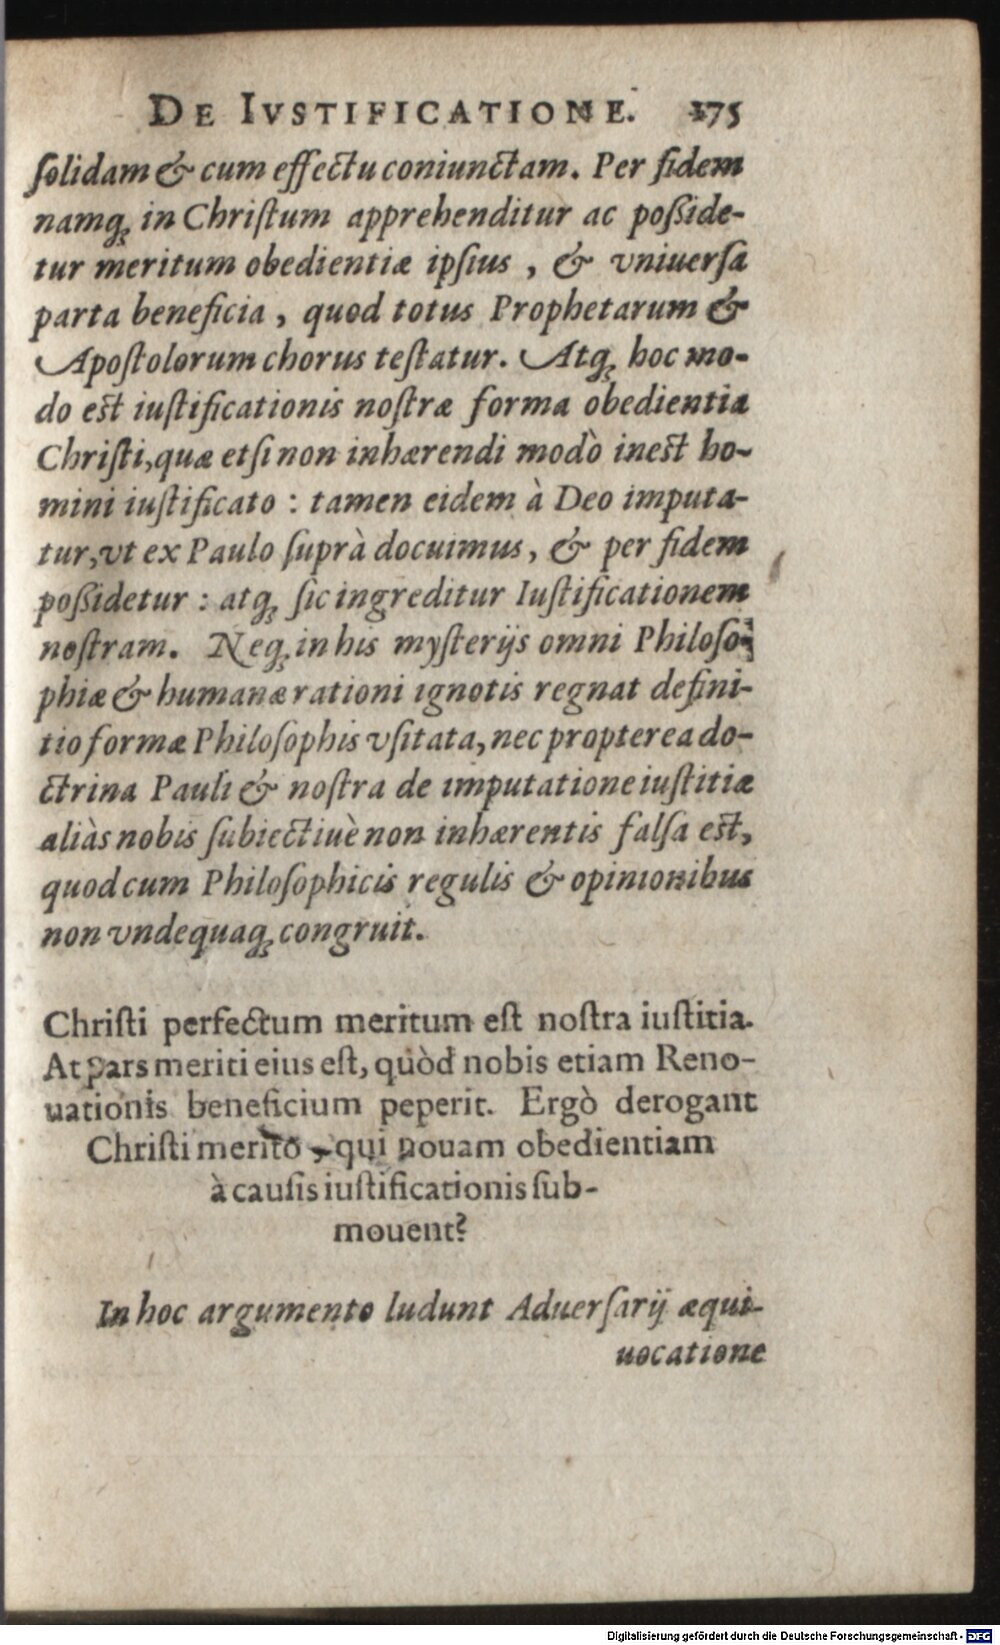 DE IVSTIFICATIONE. 275
ſolidam & cum effectu coniunctam. Per fidem
namq́; in Chriſtum apprehenditur ac poßide-
tur meritum obedientiæ ipſius, & vniuerſa
parta beneficia, quod totus Prophetarum &
Apoſtolorum chorus teſtatur. Atq́; hoc mo-
do est iuſtificationis noſtræ forma obedientia
Chriſti, quæ etſi non inhærendi modò inest ho-
mini iuſtificato: tamen eidem à Deo imputa-
tur, vt ex Paulo ſuprà docuimus, & per fidem
poßidetur: atq́; ſic ingreditur Iuſtificationem
noſtram. Neq́; in his myſterijs omni Philoſo-
phiæ & humanæ rationi ignotis regnat defini-
tio formæ Philoſophis vſitata, nec propterea do-
ctrina Pauli & noſtra de imputatione iuſtitiæ
aliàs nobis ſubiectiuè non inhærentis falſa est,
quod cum Philoſophicis regulis & opinionibus
non vndequaq́; congruit.
Chriſti perfectum meritum eſt noſtra iuſtitia.
At pars meriti eius eſt, quòd nobis etiam Reno-
uationis beneficium peperit. Ergò derogant
Chriſti merito, qui nouam obedientiam
à cauſis iuſtificationis ſub-
mouent?
In hoc argumento ludunt Aduerſarij æqui-
uocatione
Digitalisierung gefördert durch die Deutsche Forschungsgemeinschaft - DFG